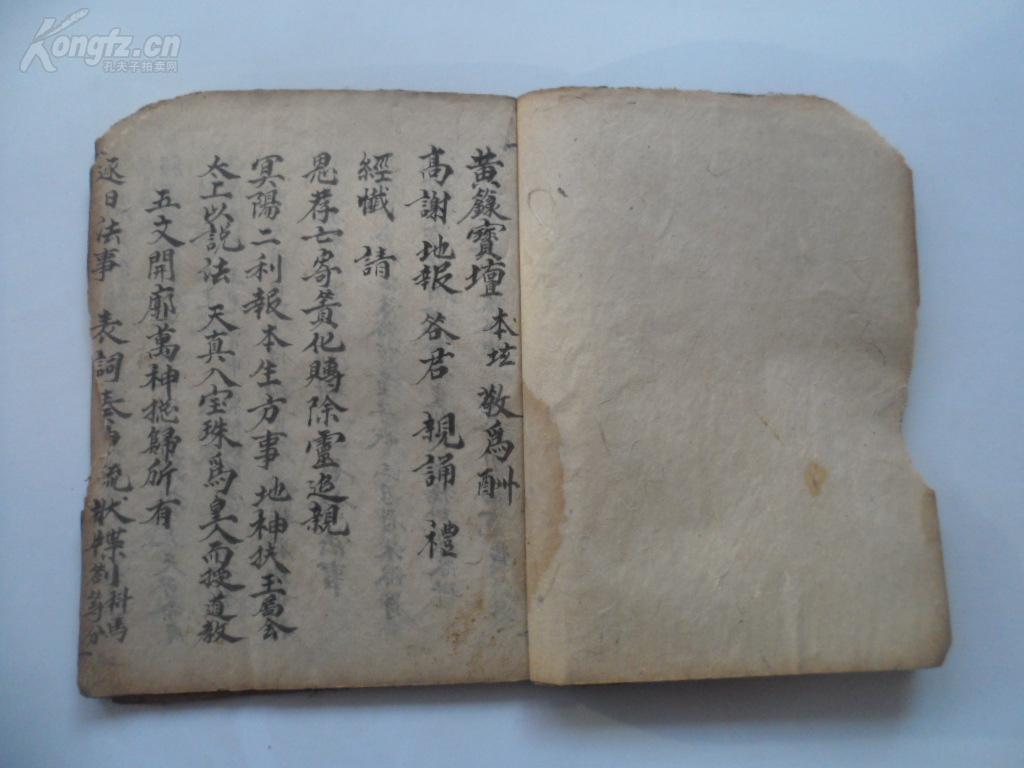 Kongfz.cn
孔夫子拍卖网
黃籙寳壇 本坛 敬爲酬
高謝地報 答君 親誦 禮
經懺 請
恩荐亡寄賫化賻除靈追親
冥陽二利報本生方事 地神扶玉局会
太上以說法 天真入宝珠爲 而授道教
五文開廓萬神揔歸所有
逐日法事 表詞奏 狀牒劄 科馬等分